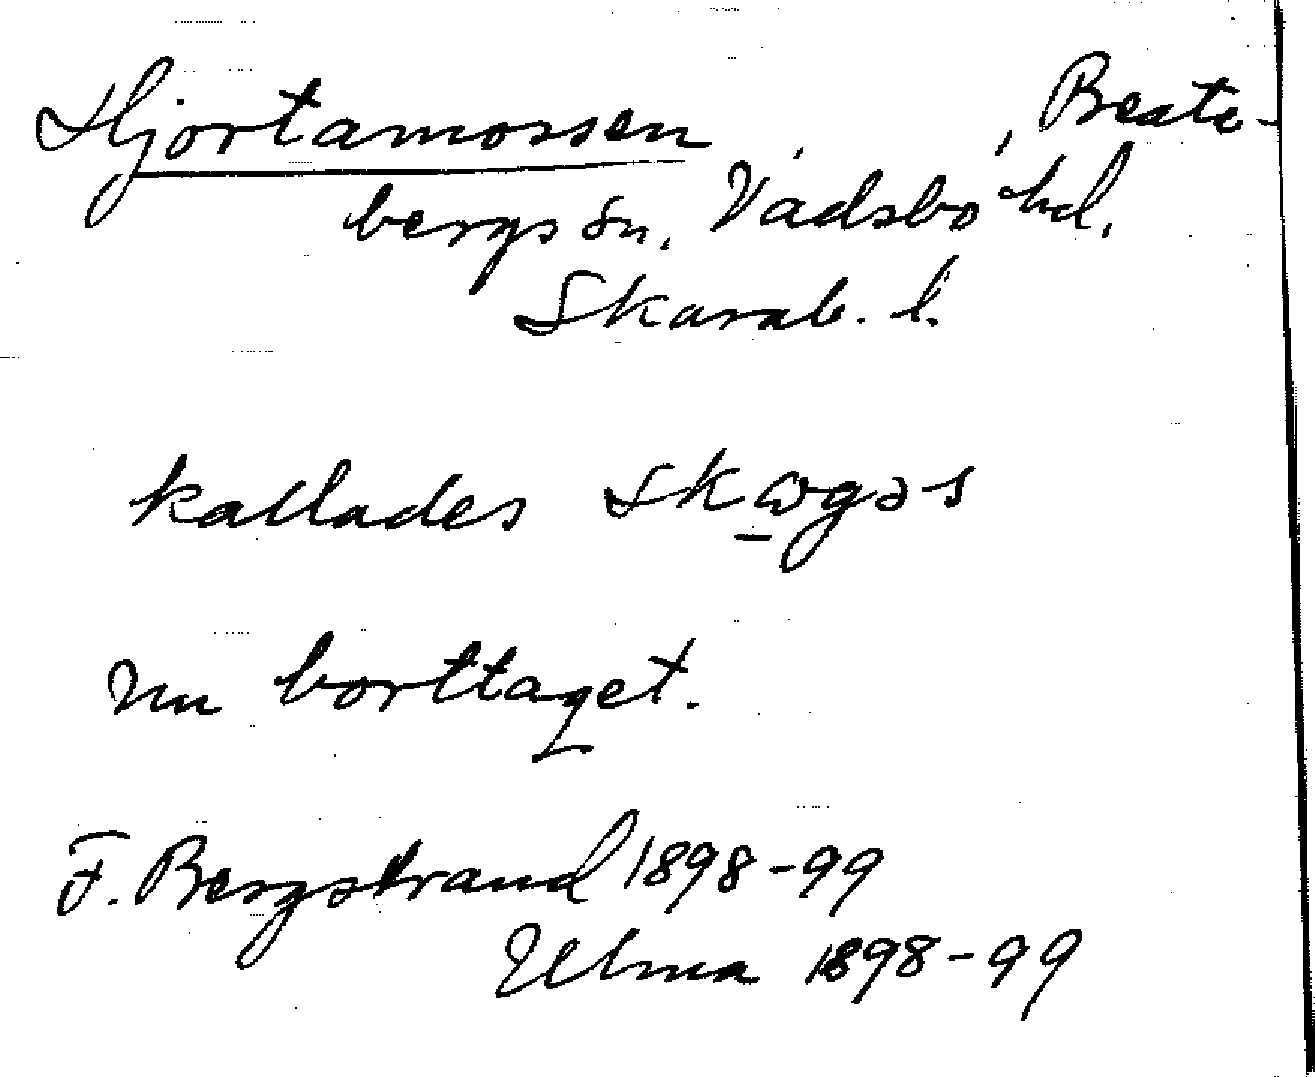 Hjortamossen , , Beate-
bergs sn. Vadsbo hd.
Skarab. l.
kallades
nu borttaget.
F. Bergstrand 1898-99
Ulma 1898-99